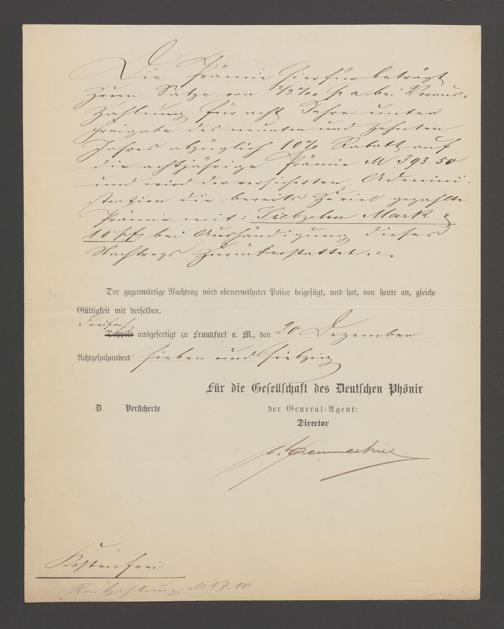 Die Prämie hierfür beträgt
zum Satze von 2/3 ‰ p a bei Voraus-
zahlung für acht Jahre unter
Freigabe des neunten und zehnten
Jahres abzüglich 10 % Rabatt auf
die achtjährige Prämie M 393.50
und wird der versicherten Admini-
stration die bereits zuviel gezahlte
Prämie mit: Siebzehn Mark &
10 Pf bei Aushändigung dieses
Nachtrags zurückerstattet.
Der gegenwärtige Nachtrag wird obenerwähnter Police beigefügt, und hat, von heute an, gleiche
Gültigkeit mit derselben.
Dreifach
Doppelt ausgefertigt zu Frankfurt a. M., den 20 Dezember
Achtzehnhundert sieben und siebzig
Für die Gesellschaft des Deutschen Phönix
D Versicherte
der General-Agent:
Director
Kostenfrei
Rückzahlung M 17.10